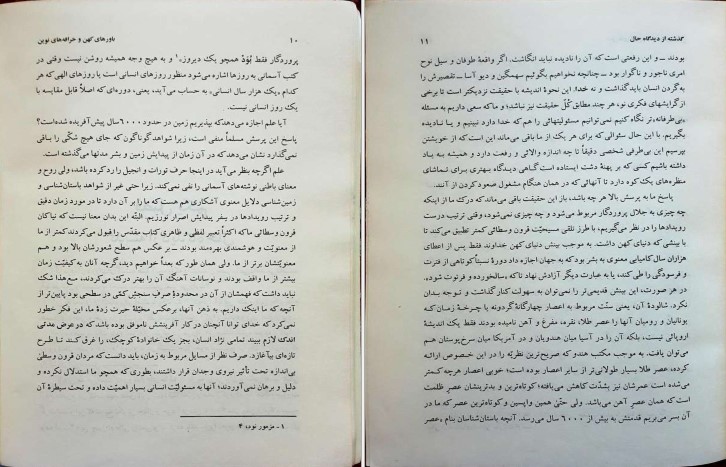 ۱۰ باورهای کهن و خرافه‌های نوین
پروردگار فقط بُوَدْ همچو یک دیروز»۱ و به هیچ وجه همیشه روشن نیست وقتی در
کتب آسمانی به روزها اشاره می‌شود منظور روزهای انسانی است یا روزهای الهی که هر
کدام «یک هزار سال انسانی» به حساب می‌آید، یعنی، دوره‌ای که اصلاً قابل مقایسه با
یک روز انسانی نیست.
آیا علم اجازه می‌دهد که بپذیریم زمین در حدود ۶۰۰۰ سال پیش آفریده شده‌است؟
پاسخ این پرسش مسلماً منفی است، زیرا شواهد گوناگون که جای هیچ شکّی را باقی
نمی‌گذارد نشان می‌دهد که در آن زمان از پیدایش زمین و بشر مدتها می‌گذشته است.
علم اگرچه بنظر می‌آید در اینجا حرف تورات و انجیل را رد کرده باشد، ولی روح و
معنای باطنی نوشته‌های آسمانی را نفی نمی‌کند. زیرا حتی غیر از شواهد باستان‌شناسی و
زمین‌شناسی دلایل معنوی آشکاری هم هست که ما را بر آن دارد تا در مورد زمان دقیق
و ترتیب رویدادها در سِفر پیدایش اصرار نورزیم. البتّه این بدان معنا نیست که نیاکان
قرون وسطائی ما که اکثراً تعبیر لفظی و ظاهری کتاب مقدّس را قبول می‌کردند کمتر از ما
از معنویّت و هوشمندی بهره‌مند بودند ـ بر عکس هم سطح شعورشان بالا بود و هم
معنویّتشان برتر از ما. ولی همان طور که بعداً خواهیم دید، گرچه آنان به کیفیّات زمان
بیشتر از ما واقف بودند و نوسانات آهنگ آن را بهتر درک می‌کردند، مع‌هذا شک
نباید داشت که فهمشان از آن در محدودهٔ صرفِ سنجشِ کمّی در سطحی بود پایین‌تر از
آنچه که ما اینک داریم. به ذهن آنها، برعکس مخیّلهٔ حیرت زدهٔ ما، این فکر خطور
نمی‌کرد که خدای توانا آنچنان در کار آفرینشش ناموفق بوده باشد که در عوض مدتی
اندک لازم ببیند تمامی نژاد انسان، بجز یک خانوادهٔ کوچک، را غرق کند تا طرح
تازه‌ای بیآغازد. صرف نظر از مسایل مربوط به زمان، باید دانست که مردان قرون وسطیٰ
بی‌اندازه تحت تأثیر نیروی وجدان قرار داشتند، بطوری که همچو ما استدلال نکرده و
دلیل و برهان نمی‌آوردند؛ آنها به مسئولیّت انسانی بسیار اهمیّت داده و تحت سیطرهٔ آن
۱ - مزمور نود، ۴
گذشته از دیدگاه حال ۱۱
بودند ـ و این رفعتی است که آن را نادیده نباید انگاشت. اگر واقعهٔ طوفان و سیل نوح
امری ناجور و ناگوار بود ـ چنانچه نخواهیم بگوئیم سهمگین و دیو آسا ـ تقصیرش را
به‌گردن انسان باید گذاشت و نه خدا. این نحوهٔ اندیشه با حقیقت نزدیکتر است تا برخی
از گرایشهای فکری نو، هر چند مطابق کُلّ حقیقت نیز نباشد؛ و ما که سعی داریم به مسئله
«بی‌طرفانه»تر نگاه کنیم نمی‌توانیم مسئولیتهائی را هم که خدا دارد نبینیم و یا نادیده
بگیریم. با این حال سئوالی که برای هر یک از ما باقی می‌ماند این است که از خویشتن
بپرسیم این بی‌طرفی شخصی دقیقاً تا چه اندازه والائی و رفعت دارد و همیشه به یاد
داشته باشیم کسی که بر پهنهٔ دشت ایستاده است گاهی دیدگاه بهتری برای تماشای
منظره‌های یک کوه دارد تا آنهائی که در همان هنگام مشغول صعود کردن از آنند.
پاسخ ما به پرسش بالا هر چه باشد، باز این حقیقت باقی می‌ماند که درک ما از اینکه
چه چیزی به جلال پروردگار مربوط می‌شود و چه چیزی نمی‌شود، وقتی ترتیب درست
رویدادها را در نظر می‌گیریم، با طرز تلقی مسیحیّت قرون وسطائی کمتر تطبیق می‌کند تا
با بینشی که دنیای کهن داشت. به موجب بینش دنیای کهن خداوند فقط پس از اعطای
هزاران سال کامیابی معنوی به بشر بود که به جهان اجازه داد دورهٔ نسبةً کوتاهی از فترت
و فرسودگی را طی کند، یا به عبارت دیگر آزادش نهاد تا که سالخورده و فرتوت شود.
در هر صورت، این بینش قدیمی‌تر را نمی‌توان به سهولت کنار گذاشت و توجه بدان
نکرد. شالودهٔ آن، یعنی سنّت مربوط به اعصار چهارگانهٔ گردونه یا چرخهٔ زمان که
یونانیان و رومیان آنها را عصر طلا، نقره، مفرغ و آهن نامیده بودند فقط یک اندیشهٔ
اروپائی نیست، بلکه آن را در آسیا میان هندویان و در آمریکا میان سرخ‌پوستان هم
می‌توان یافت. به موجب مکتب هندو که صریح‌ترین نظریّه را در این خصوص ارائه
کرده، عصر طلا بسیار طولانی‌تر از سایر اعصار بوده است؛ خوبی اعصار هرچه که کمتر
می‌شده است عمرشان نیز بشدّت کاهش می‌یافته؛ کوتاه‌ترین و بدترینشان عصر ظلمت
است که همان عصرِ آهن می‌باشد. ولی حتّیٰ همین واپسین و کوتاه‌ترین عصر که ما در
آن بسر می‌بریم قدمتش به بیش از ۶۰۰۰ سال می‌رسد. آنچه باستان‌شناسان بنام «عصر